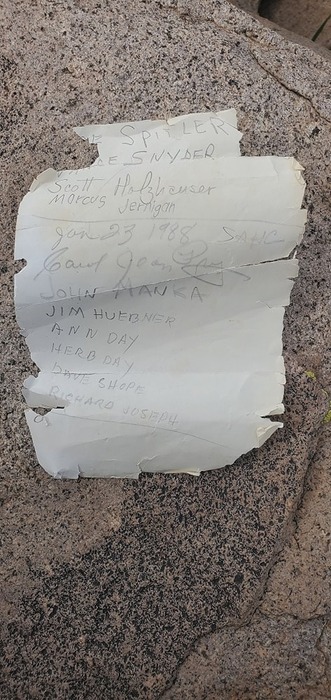 SPITLER
SNYDER
Scott Holzhauser
Marcus Jernigan
Jan 23 1988 SAHC
Carol Jean
JOHN MANKA
JIM HUEBNER
ANN DAY
HERB DAY
DAVE SHOPE
RICHARD JOSEPH